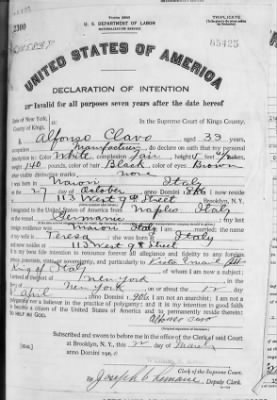 Form 2203
TRIPLICATE
U. S. DEPARTMENT OF LABOR
NATURALIZATION SERVICE
65425
UNITED STATES OF AMERICA
DECLARATION OF INTENTION
Invalid for all purposes seven years after the date hereof
State of New York,
County of Kings,
In the Supreme Court of Kings County.
I, Alfonso Clavo aged 33 years,
occupation Manufacturer, do declare on oath that my personal
description is: Color White complexion fair height
140 pounds, color of hair Black color of eyes Brown
other visible distinctive marks none
I was born in Italy
on the 27 day of October anno Domini I now reside
at 113 West 9th Street Brooklyn, N. Y.
I emigrated to the United States of America from Naples Italy
on the vessel Germanic my last
foreign residence was Italy I am married; the name
of my wife is Teresa she was born at Italy
and now resides at 113 West 9th Street
It is my bona fide intention to renounce forever all allegiance and fidelity to any foreign
prince, potentate, state, or sovereignty, and particularly to
King of Italy of whom I am now a subject;
I arrived at the port of New York in the
of New York on or about the day
of April anno Domini I am not an anarchist; I am not a
polygamist nor a believer in the practice of polygamy; and it is my intention in good faith
to become a citizen of the United States of America and to permanently reside therein:
SO HELP ME GOD.
Subscribed and sworn to before me in the office of the Clerk of said Court
at Brooklyn, N. Y., this day of March
anno Domini
Clerk of the Supreme Court.
By Joseph Deputy Clerk.